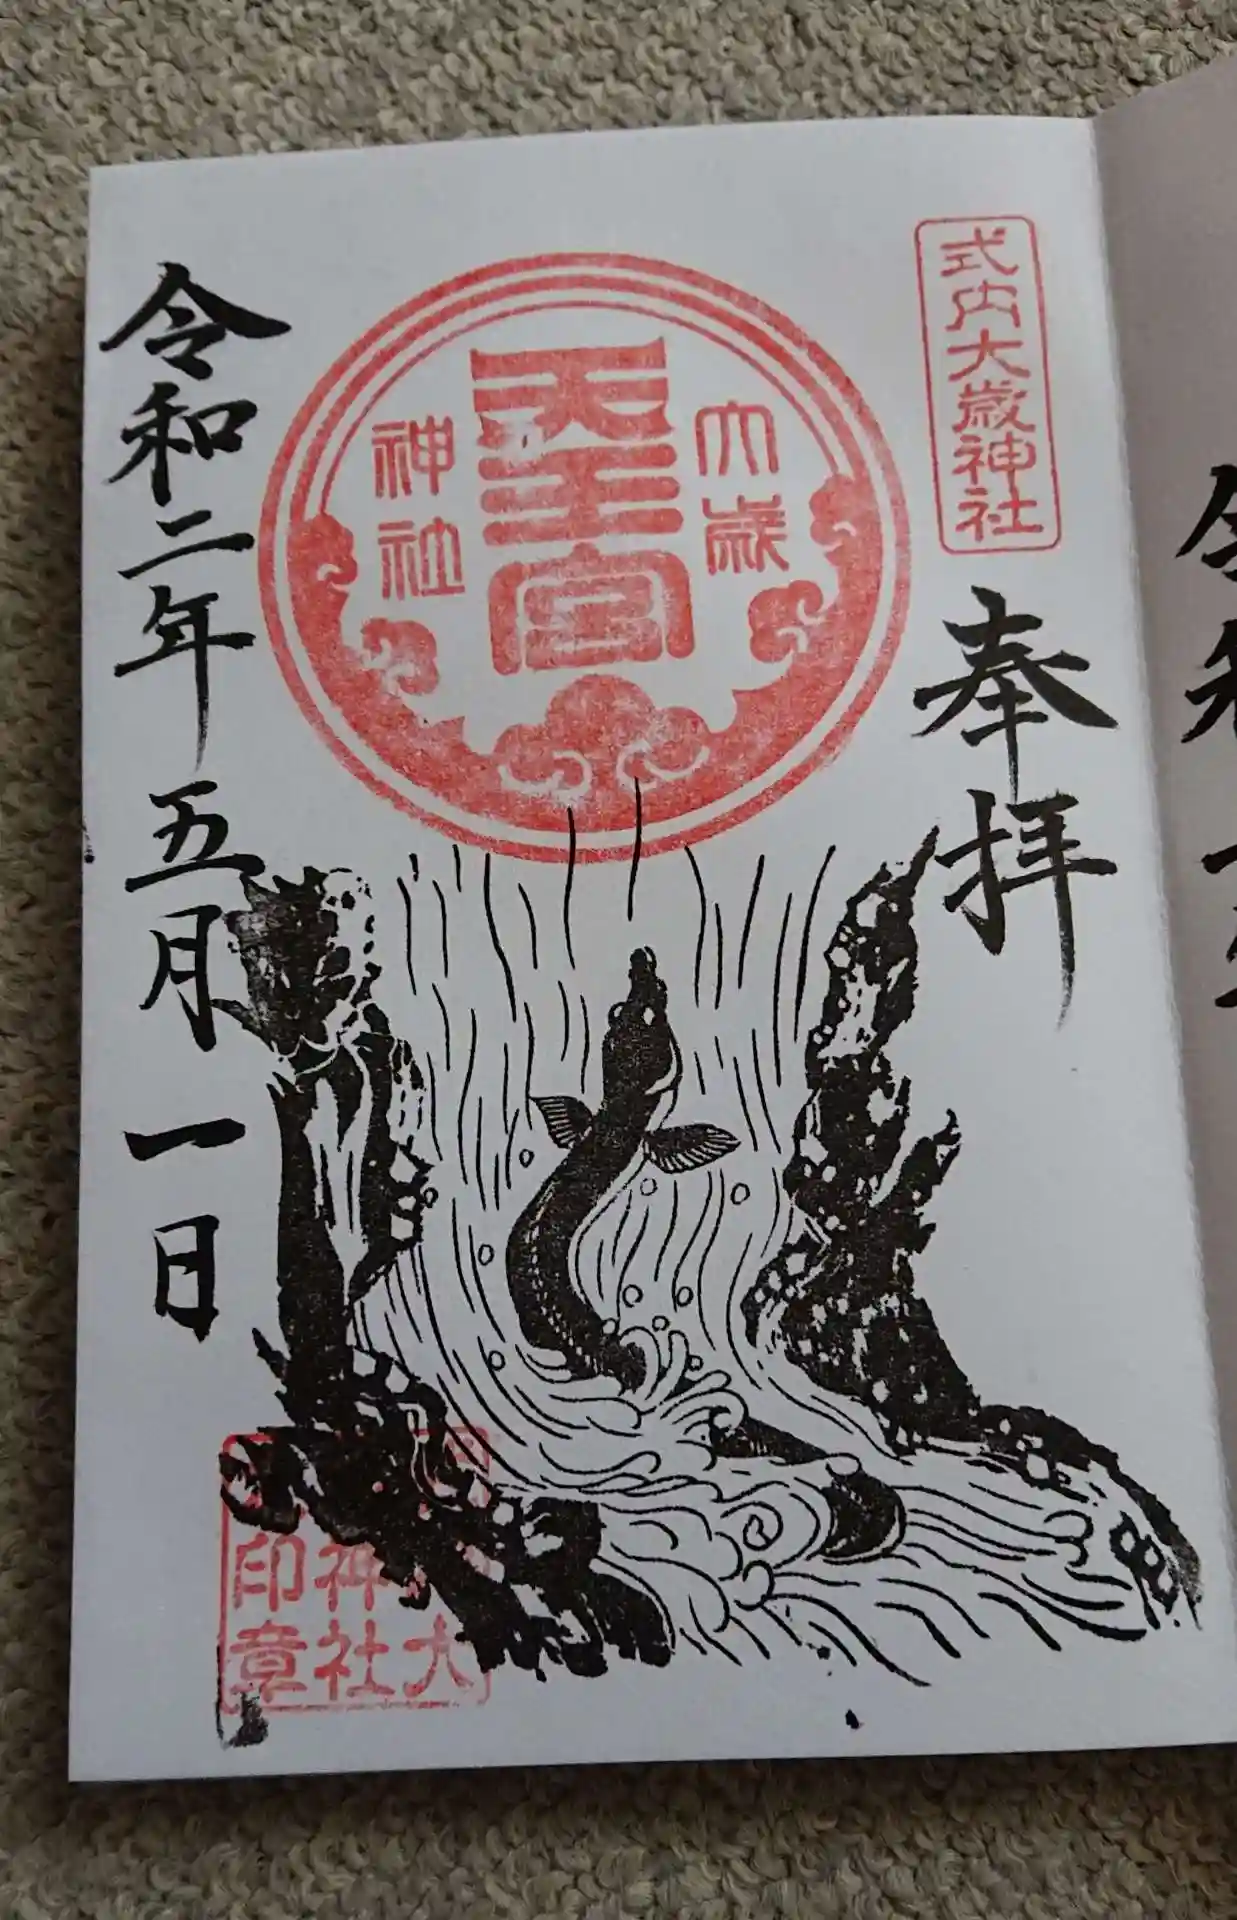 式内大歳神社
奉拝
大歳
天王宮
神社
令和二年五月一日
大
神社
印章